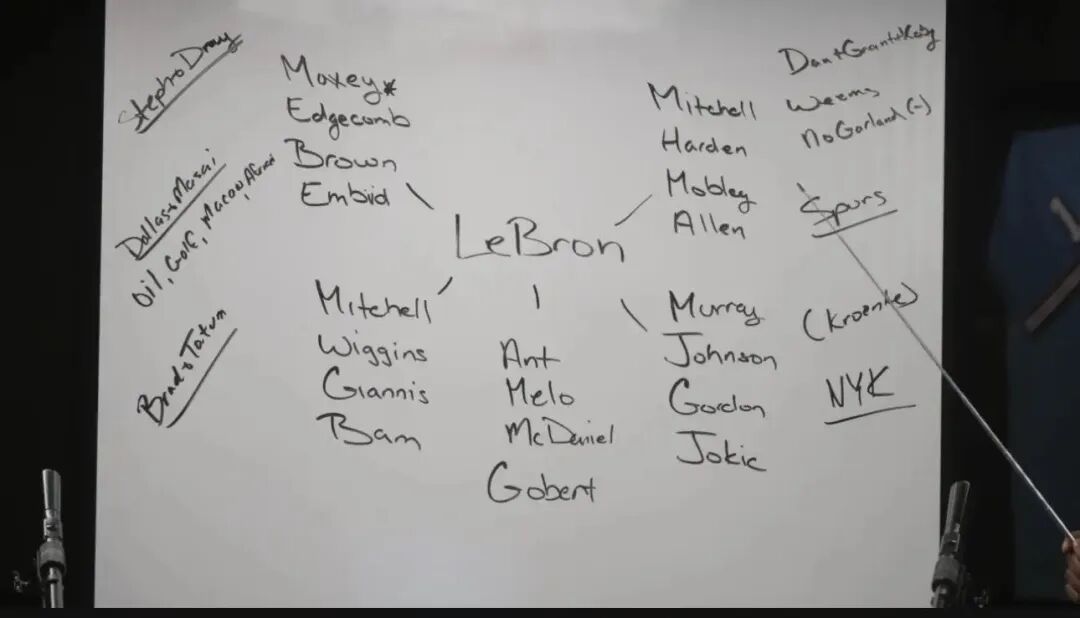 Steph+Dray
Dallas+Masai
Oil, Golf,
Brad+Tatum
Maxey*
Edgecomb
Brown
Embiid
LeBron
Mitchell
Harden
Mobley
Allen
Dan+Grant+Koby
Weems
No Garland (-)
Spurs
(Kroenke)
NYK
Mitchell
Wiggins
Giannis
Bam
Ant
Melo
McDaniel
Gobert
Murray
Johnson
Gordon
Jokic